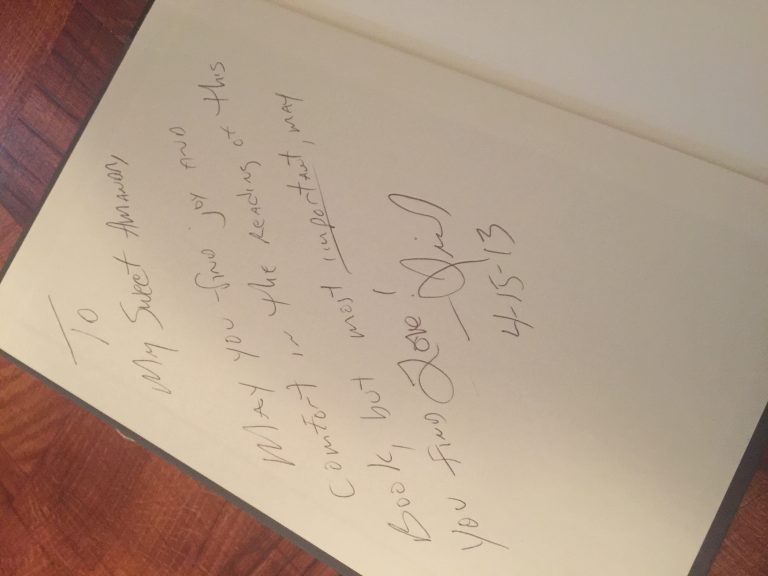 To
My Sweet Amanda,
May you find joy and
comfort in the reading of this
Book, but most important, may
you find Love!
4-15-13